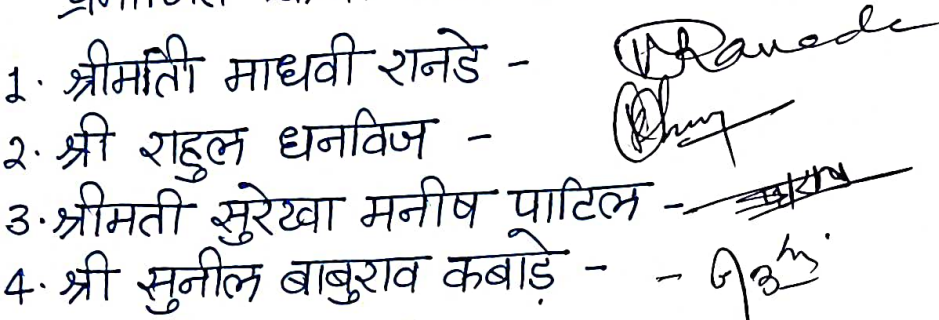 1. श्रीमती माधवी रानडे - Ranade
2. श्री राहुल धनविज -
3. श्रीमती सुरेखा मनीष पाटिल -
4. श्री सुनील बाबुराव कबाड़े -